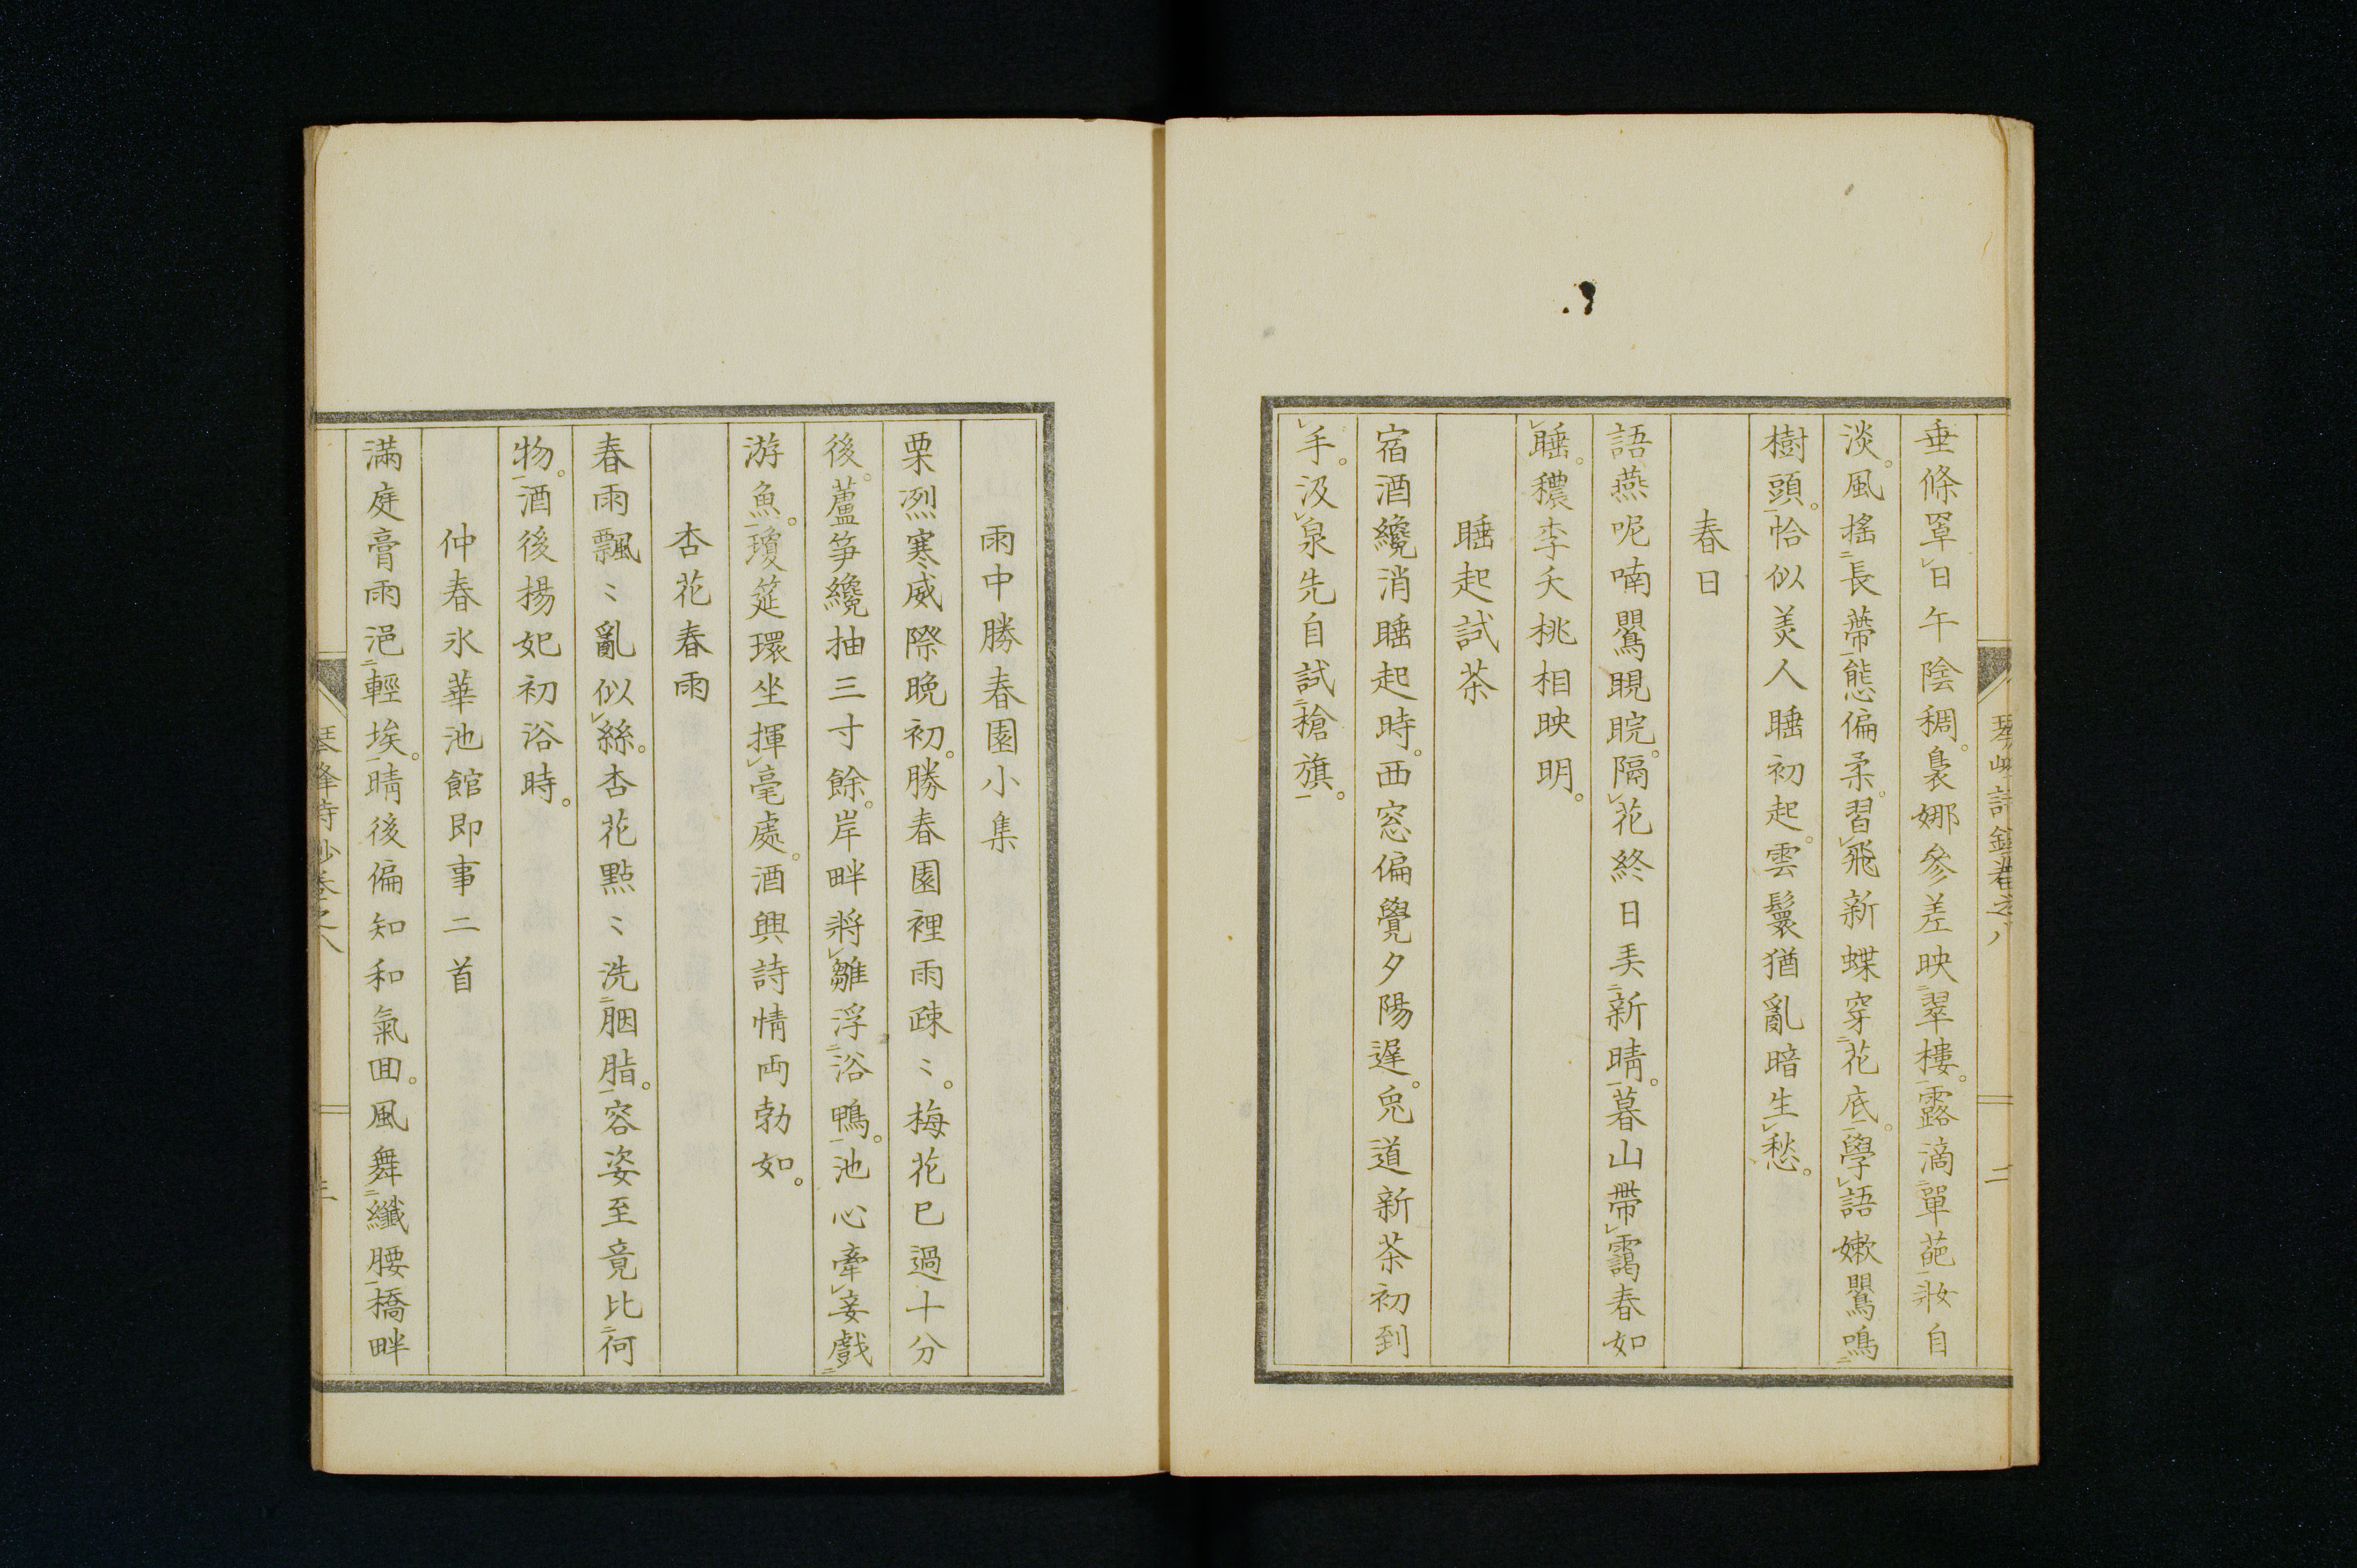 垂條罩日午陰稠。裊娜參差映翠樓。露滴單葩妝自
淡。風搖長帶態偏柔。習飛新蝶穿花底。學語嫩鸎鳴
樹頭。恰似美人睡初起。雲鬟猶亂暗生愁。
春日
語燕呢喃鸎睍睆。隔花終日美新晴。暮山帶靄春如
睡。穠李夭桃相映明。
睡起試茶
宿酒纔消睡起時。西窓偏覺夕陽遲。皃道新茶初到
手。汲泉先自試槍旗。
二
雨中勝春園小集
栗烈寒威際晩初。勝春園裡雨疎〻。梅花已過十分
後。蘆笋纔抽三寸餘。岸畔將雛浮浴鴨。池心牽妾戲
游魚。瓊筵環坐揮毫處。酒興詩情両勃如。
杏花春雨
春雨飄〻亂似絲。杏花點〻洗胭脂。容姿至竟比何
物。酒後楊妃初浴時。
仲春氷華池館即事二首
滿庭膏雨浥輕埃。晴後偏知和氣回。風舞纖腰橋畔
琴峰詩鈔卷之八